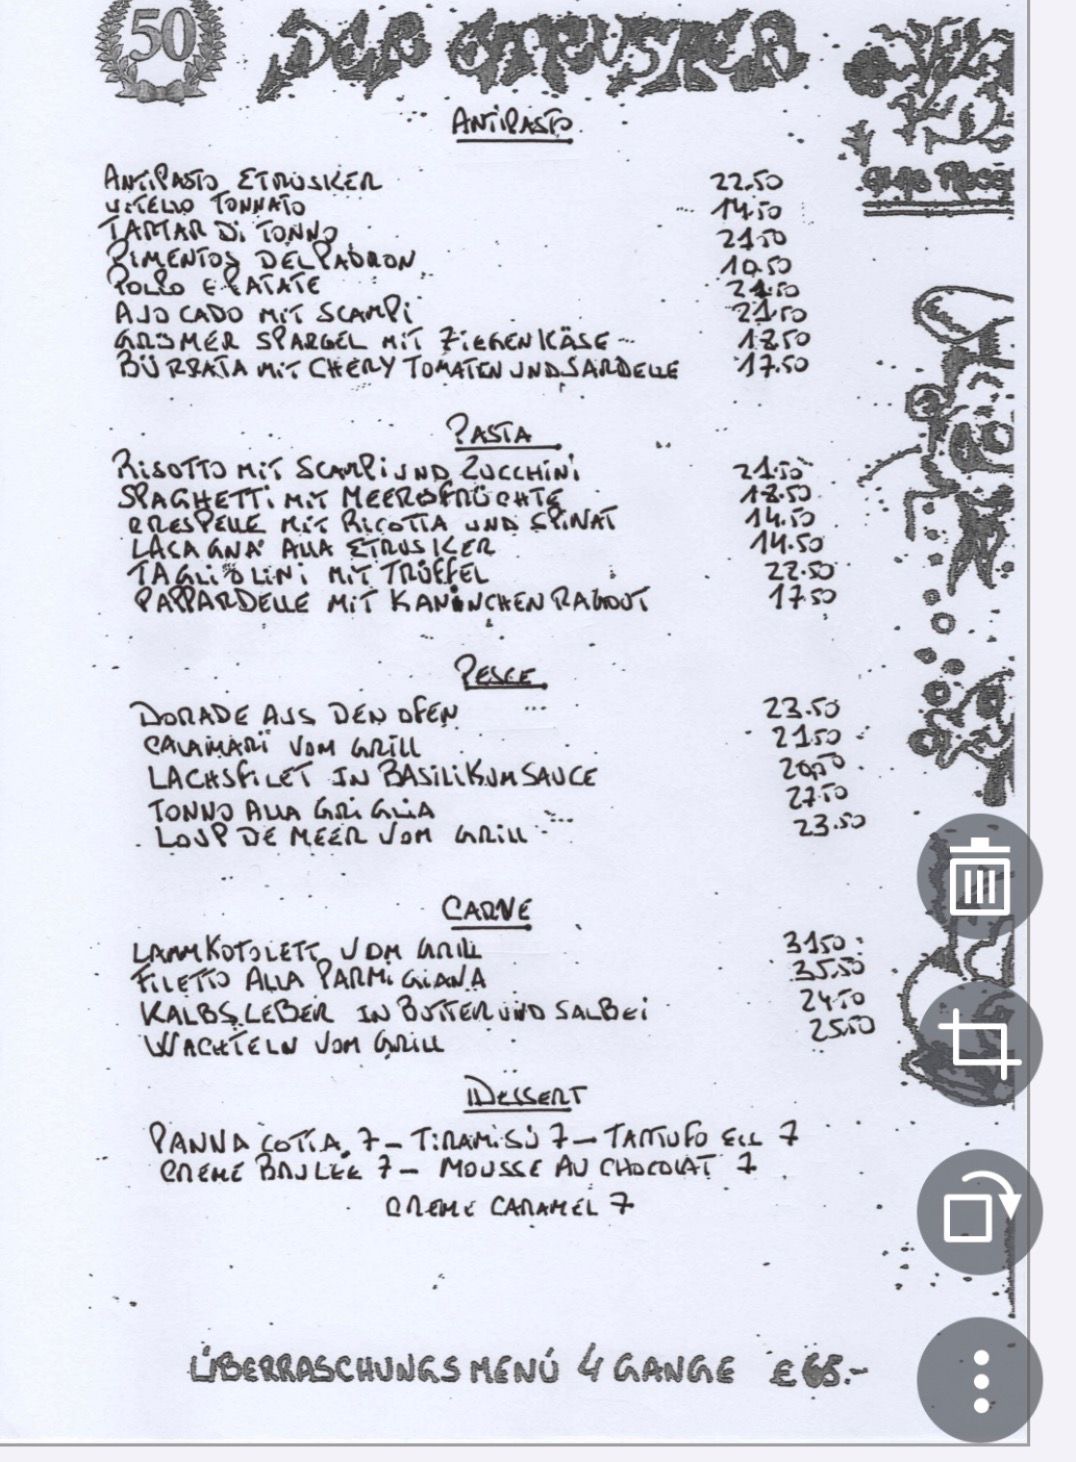 50
DER ETRUSKER
ANTIPASTO
ANTIPASTO ETRUSKER 22.50
VITELLO TONNATO 14.50
TARTAR Di TONNO 21.50
PIMENTOS DEL PADRON 10.50
POLPO E PATATE 21.50
AVOCADO MIT SCAMPi 21.50
GRÜNER SPARGEL MIT ZIEGENKÄSE 18.50
BÜRRATA MIT CHERY TOMATEN UND SARDELLE 17.50
PASTA
RISOTTO MIT SCAMPI UND ZUCCHINI 21.50
SPAGHETTI MIT MEERESFRÜCHTE 18.50
CRESPELLE MIT RICOTTA UND SPINAT 14.50
LASAGNA ALLA ETRUSKER 14.50
TAGLIOLINI MIT TRÜFFEL 22.50
PAPPARDELLE MIT KANINCHEN RAGOUT 17.50
PESCE
DORADE AUS DEN OFEN 23.50
CALAMARI VOM GRILL 21.50
LACHSFILET IN BASILIKUM SAUCE
TONNO ALLA GRIGLIA 27.50
LOUP DE MEER VOM GRILL 23.50
CARNE
LAMMKOTOLETT VOM GRILL 31.50
FILETTO ALLA PARMIGIANA 35.50
KALBSLEBER IN BUTTER UND SALBEI 24.50
WACHTELN VOM GRILL 25.50
DESSERT
PANNA COTTA 7 - TIRAMISÚ 7 - TARTUFO 7
CREME BRULÉE 7 - MOUSSE AU CHOCOLAT 7
CREME CARAMEL 7
ÜBERRASCHUNGSMENÚ 4 GANGE € 65.-